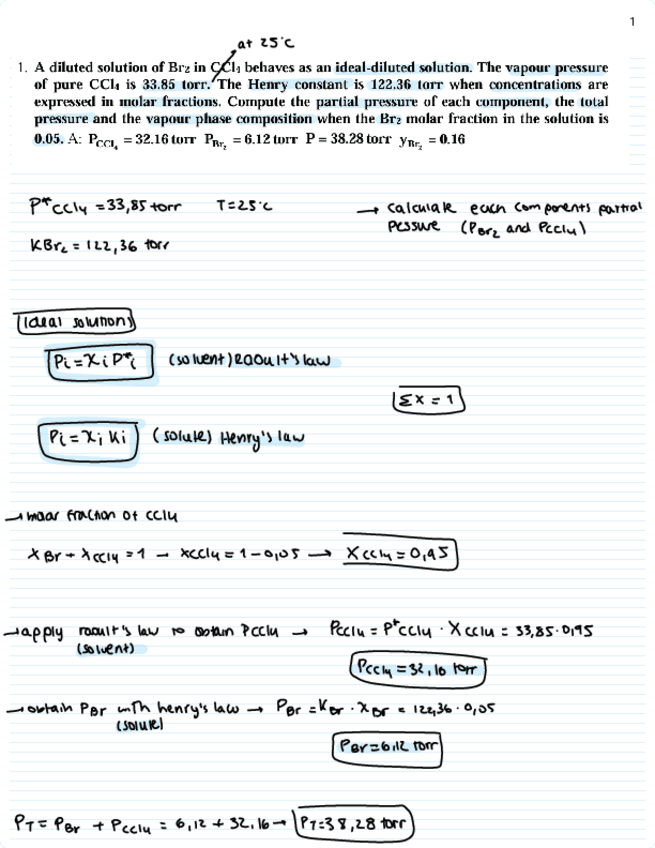 1
at 25°C
1. A diluted solution of Br₂ in CCl₄ behaves as an ideal-diluted solution. The vapour pressure
of pure CCl₄ is 33.85 torr. The Henry constant is 122.36 torr when concentrations are
expressed in molar fractions. Compute the partial pressure of each component, the total
pressure and the vapour phase composition when the Br₂ molar fraction in the solution is
0.05. A: P_CCl₄ = 32.16 torr P_Br₂ = 6.12 torr P = 38.28 torr y_Br₂ = 0.16
P*CCl4 = 33,85 torr T=25°C → calculate each components partial
pessure (PBr₂ and PCCl4)
KBr₂ = 122,36 torr
Ideal solutions
Pi = Xi P*i (solvent) Raoult's law
Σx = 1
Pi = Xi Ki (solute) Henry's law
→ molar fraction of CCl4
XBr + XCCl4 = 1 → XCCl4 = 1 - 0,05 → XCCl4 = 0,95
→ apply raoult's law to obtain PCCl4 → PCCl4 = P*CCl4 · XCCl4 = 33,85 · 0,95
(solvent)
PCCl4 = 32,16 torr
→ obtain PBr with henry's law → PBr = KBr · XBr = 122,36 · 0,05
(solute)
PBr = 6,12 torr
PT = PBr + PCCl4 = 6,12 + 32,16 → PT = 38,28 torr